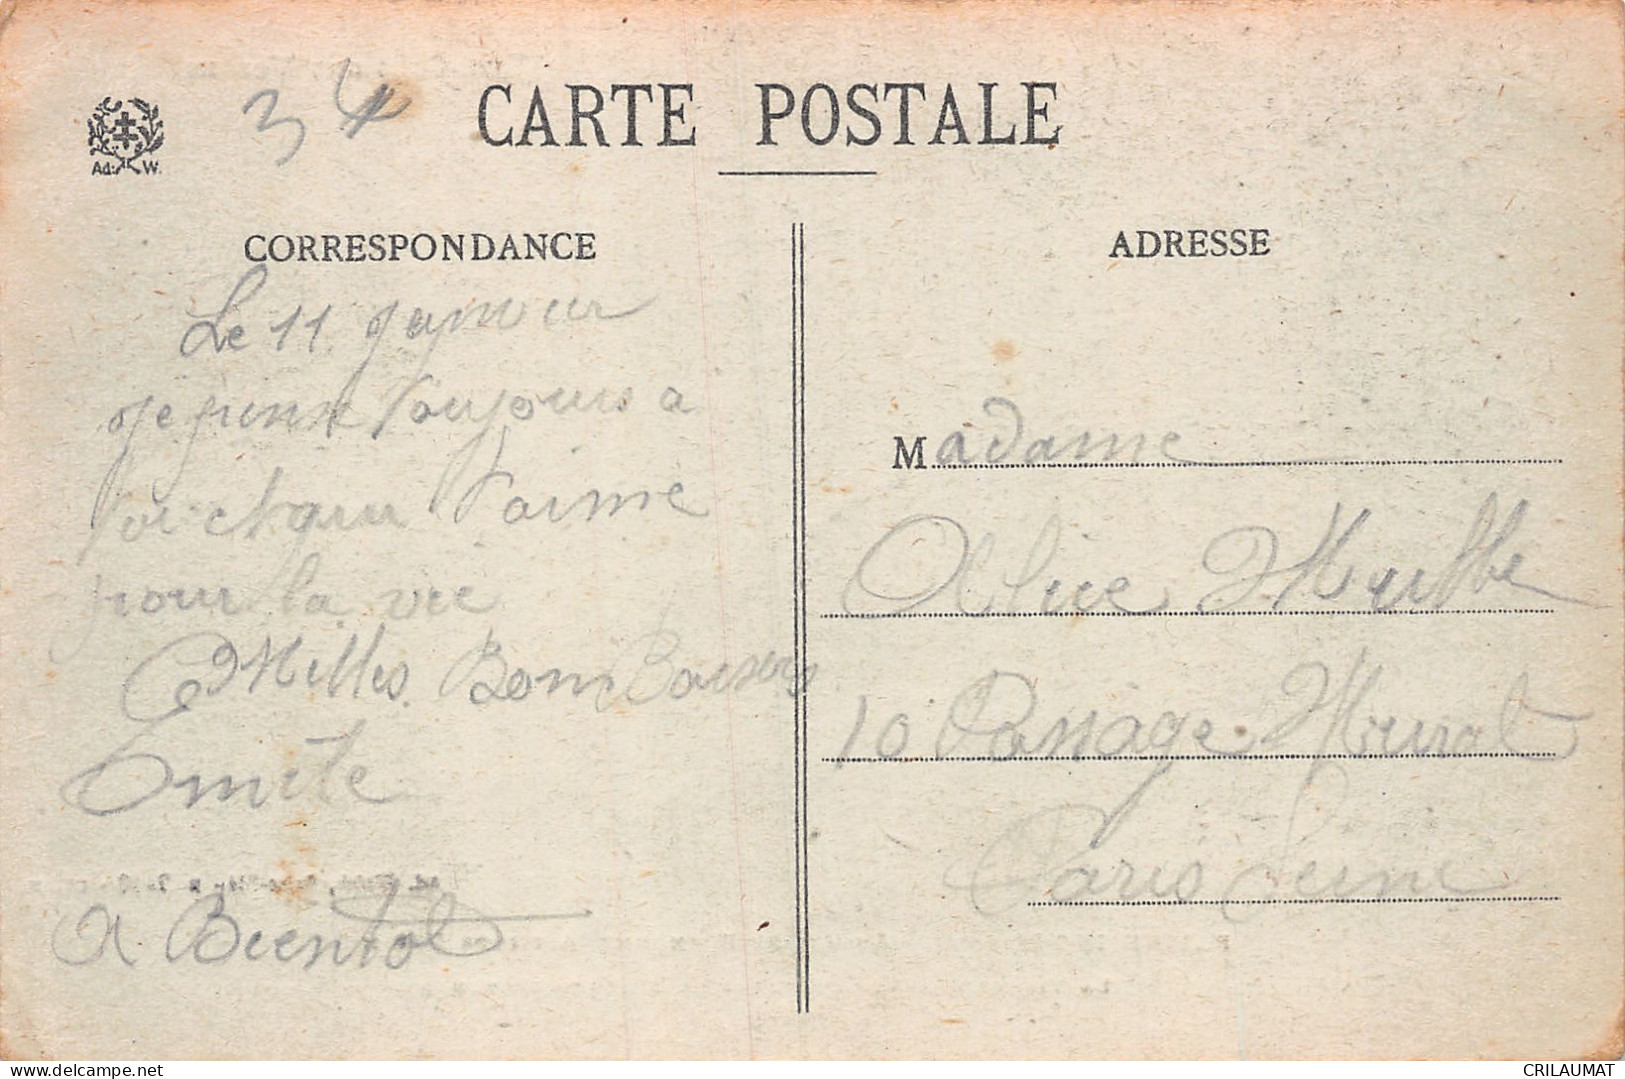 34
CARTE POSTALE
Ad. W.
CORRESPONDANCE
Le 11
Je pense Toujours a
Toi Taime
pour la vie
Milles Bons Baisers
Emile
A Bientot
ADRESSE
Madame
Alice
10 Passage Murat
Paris Seine
delcampe.net
CRILAUMAT